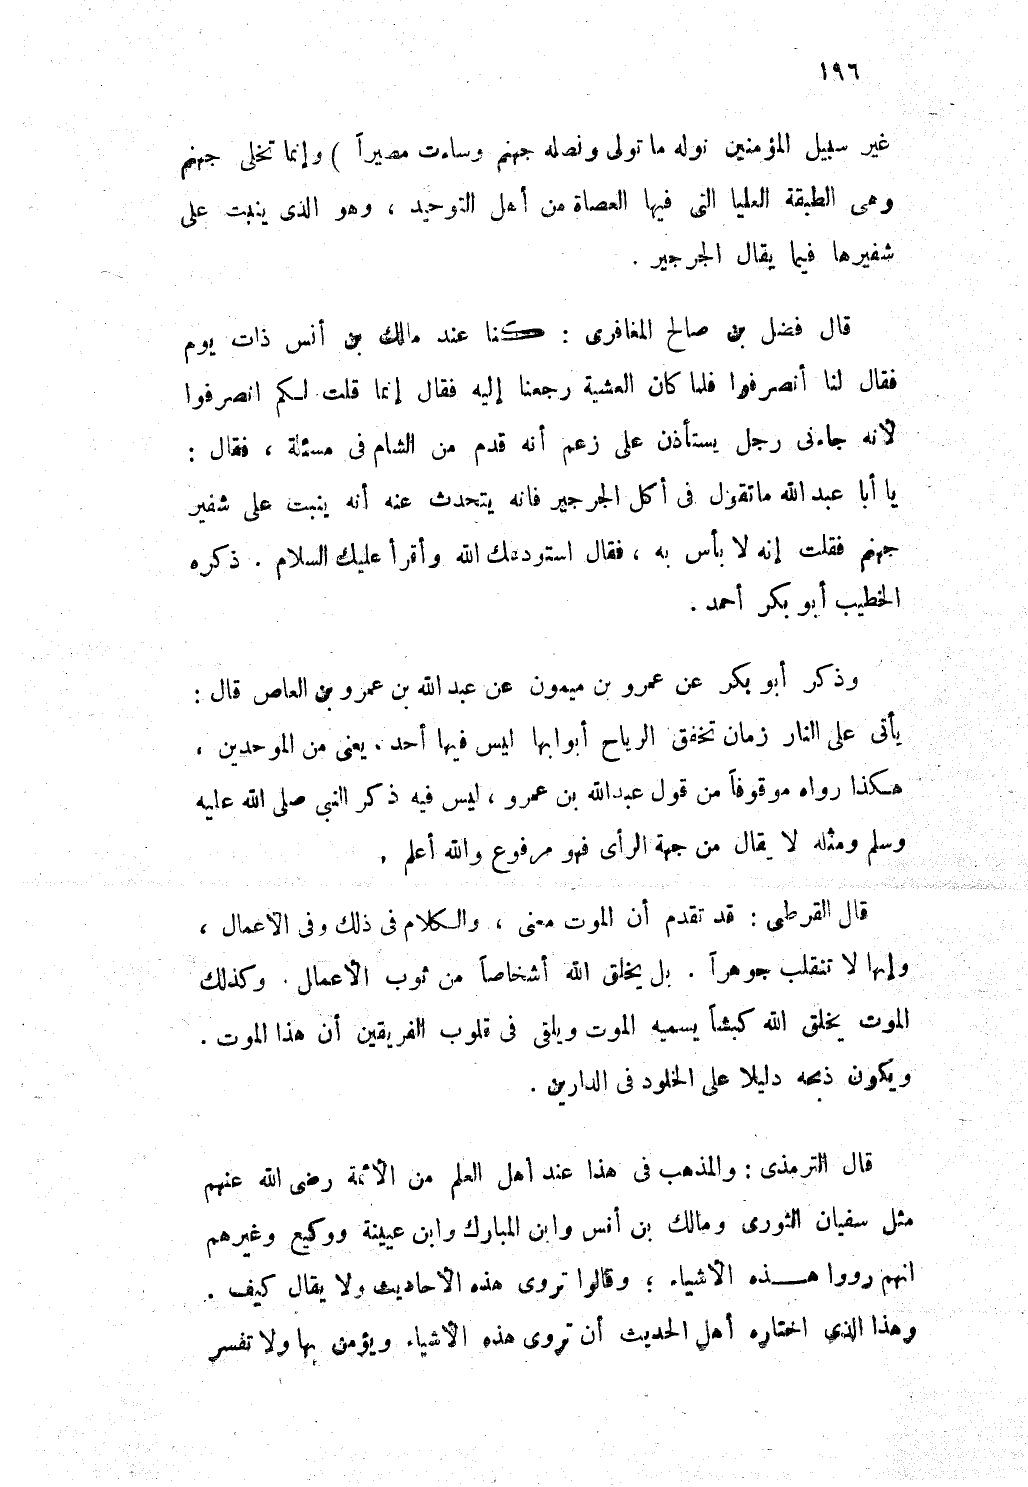 ١٩٦
غير سبيل المؤمنين نوله ما تولى ونصله جهنم وساءت مصيراً ) وإنما تخلى جهنم
وهى الطبقة العليا التى فيها العصاة من أهل التوحيد ، وهو الذى ينبت على
شفيرها فيما يقال الجرجير .
قال فضل بن صالح المغافرى : كنا عند مالك بن أنس ذات يوم
فقال لنا أنصرفوا فلما كان العشية رجعنا إليه فقال إنما قلت لكم انصرفوا
لأنه جاءنى رجل يستأذن على زعم أنه قدم من الشام فى مسئلة ، فقال :
يا أبا عبد الله ماتقول فى أكل الجرجير فانه يتحدث عنه أنه ينبت على شفير
جهنم فقلت إنه لا بأس به ، فقال استودعك الله وأقرأ عليك السلام . ذكره
الخطيب أبو بكر أحمد .
وذكر أبو بكر عن عمرو بن ميمون عن عبد الله بن عمرو بن العاص قال :
يأتى على النار زمان تخفق الرياح أبوابها ليس فيها أحد ، يعنى من الموحدين ،
هكذا رواه موقوفاً من قول عبدالله بن عمرو ، ليس فيه ذكر النبى صلى الله عليه
وسلم ومثله لا يقال من جهة الرأى فهو مرفوع والله أعلم .
قال القرطبى : قد تقدم أن الموت معنى ، والكلام فى ذلك وفى الأعمال ،
وإنها لا تنقلب جوهراً . بل يخلق الله أشخاصاً من ثوب الأعمال . وكذلك
الموت يخلق الله كبشاً يسميه الموت ويلقى فى قلوب الفريقين أن هذا الموت .
ويكون ذبحه دليلا على الخلود فى الدارين .
قال الترمذى : والمذهب فى هذا عند أهل العلم من الأئمة رضى الله عنهم
مثل سفيان الثورى ومالك بن أنس وابن المبارك وابن عيينة ووكيع وغيرهم
انهم رووا هذه الأشياء ؛ وقالوا تروى هذه الأحاديث ولا يقال كيف .
وهذا الذى اختاره أهل الحديث أن تروى هذه الأشياء ويؤمن بها ولا تفسر